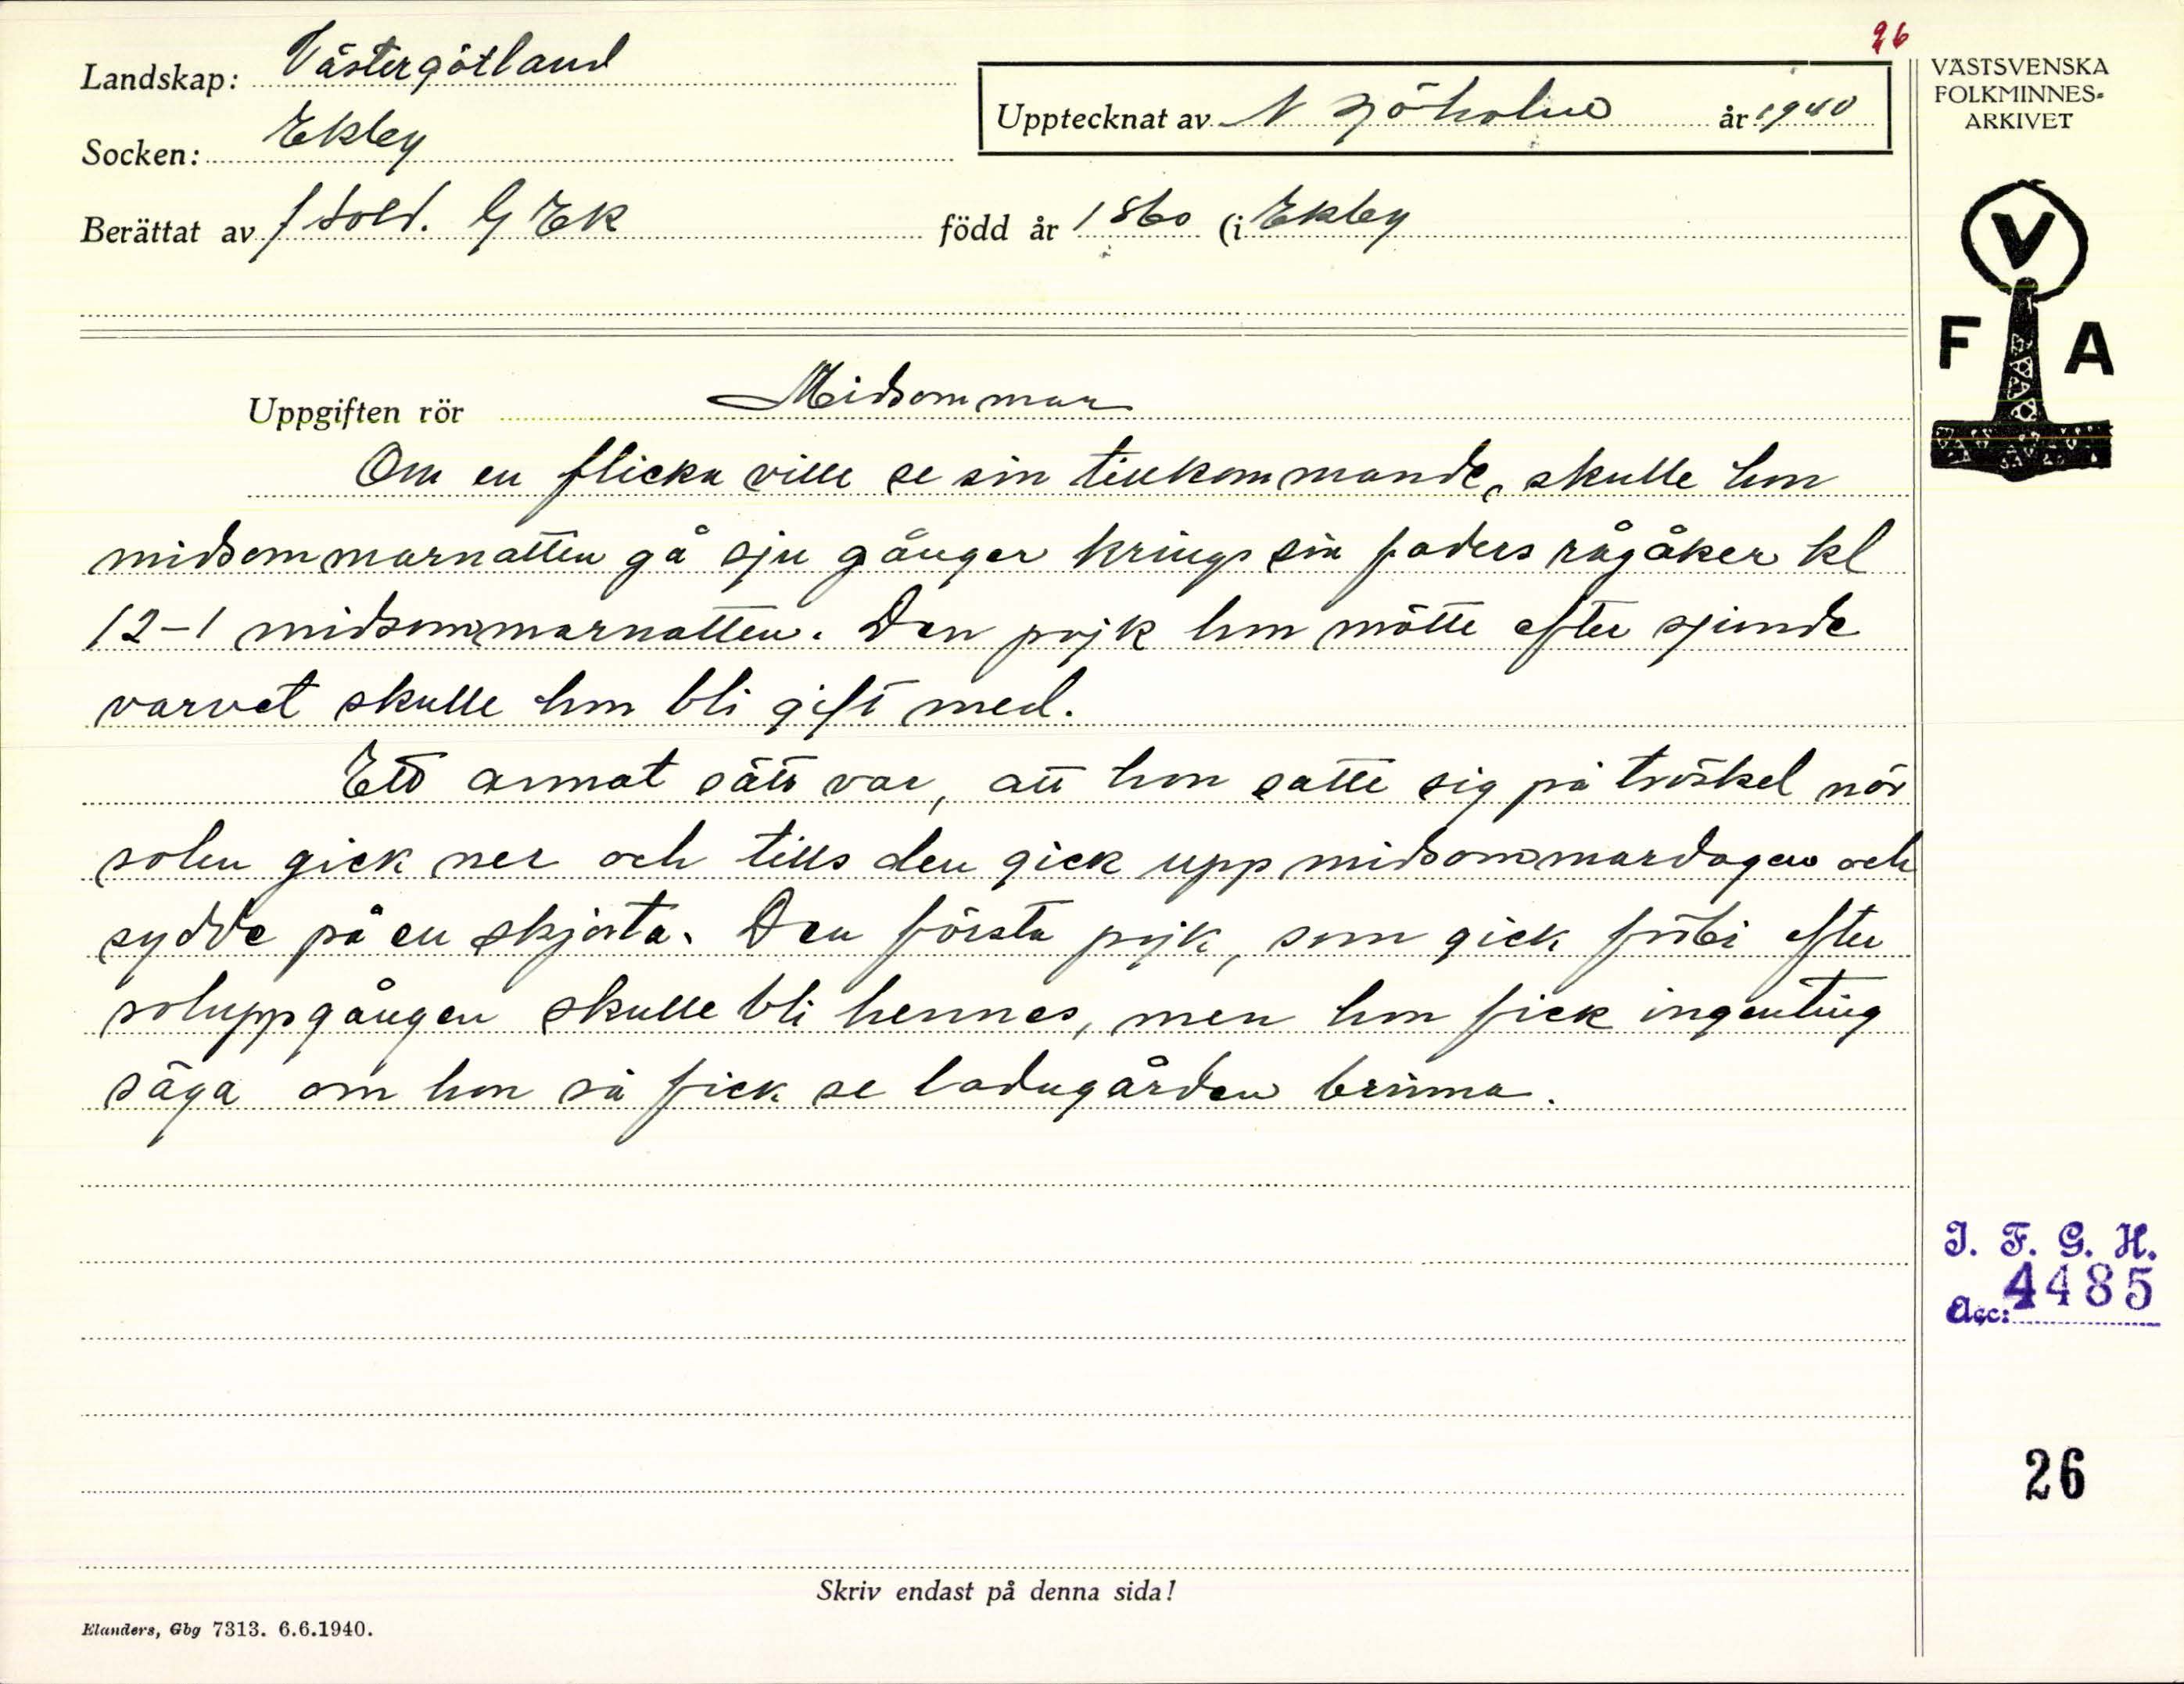 26
Landskap: Västergötland
Socken: Ekby
Berättat av f sold. G Ek född år 1860 (i Ekby
Upptecknat av N Sjöholm år 1940
VÄSTSVENSKA
FOLKMINNES-
ARKIVET
V
F A
Uppgiften rör Midsommar
Om en flicka ville se sin tillkommande, skulle hon
midsommarnatten gå sju gånger kring sin faders rågåker kl
12-1 midsommarnatten. Den pojk hon mötte efter sjunde
varvet skulle hon bli gift med.
Ett annat sätt var, att hon satte sig på tröskel när
solen gick ner och tills den gick upp midsommardagen och
sydde på en skjorta. Den första pojk, som gick förbi efter
soluppgången skulle bli hennes, men hon fick ingenting
säga om hon så fick se ladugården brinna.
I. F. G. H.
Acc: 4485
26
Skriv endast på denna sida!
Elanders, Gbg 7313. 6.6.1940.